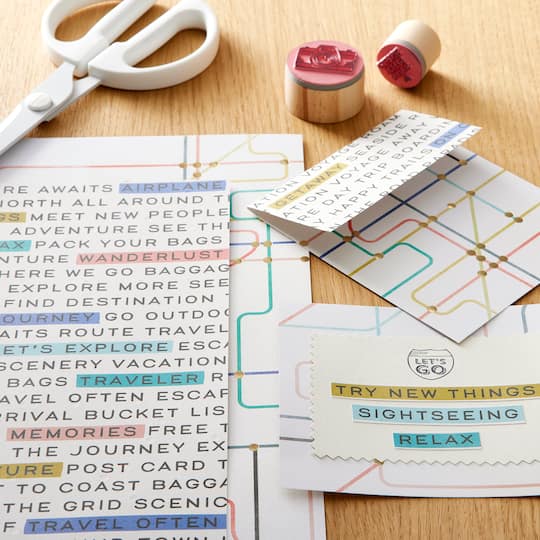 RE AWAITS AIRPLANE
NORTH ALL AROUND T
GS MEET NEW PEOPLE
ADVENTURE SEE TH
AX PACK YOUR BAGS
NTURE WANDERLUST
HERE WE GO BAGGA
EXPLORE MORE SEE
FIND DESTINATION T
OURNEY GO OUTDO
AITS ROUTE TRAVEL
ET'S EXPLORE ESCA
SCENERY VACATION
BAGS TRAVELER R
AVEL OFTEN ESCAP
RIVAL BUCKET LIS
MEMORIES FREE T
THE JOURNEY EX
TURE POST CARD T
T TO COAST BAGGA
THE GRID SCENIC
F TRAVEL OFTEN
ATION VOYAGE
GETAWAY SEASIDE R
ATION VOYAGE AWAY
RE DAY TRIP BOARDIN
HAPPY TRAILS ON
LET'S
GO
TRY NEW THINGS
SIGHTSEEING
RELAX